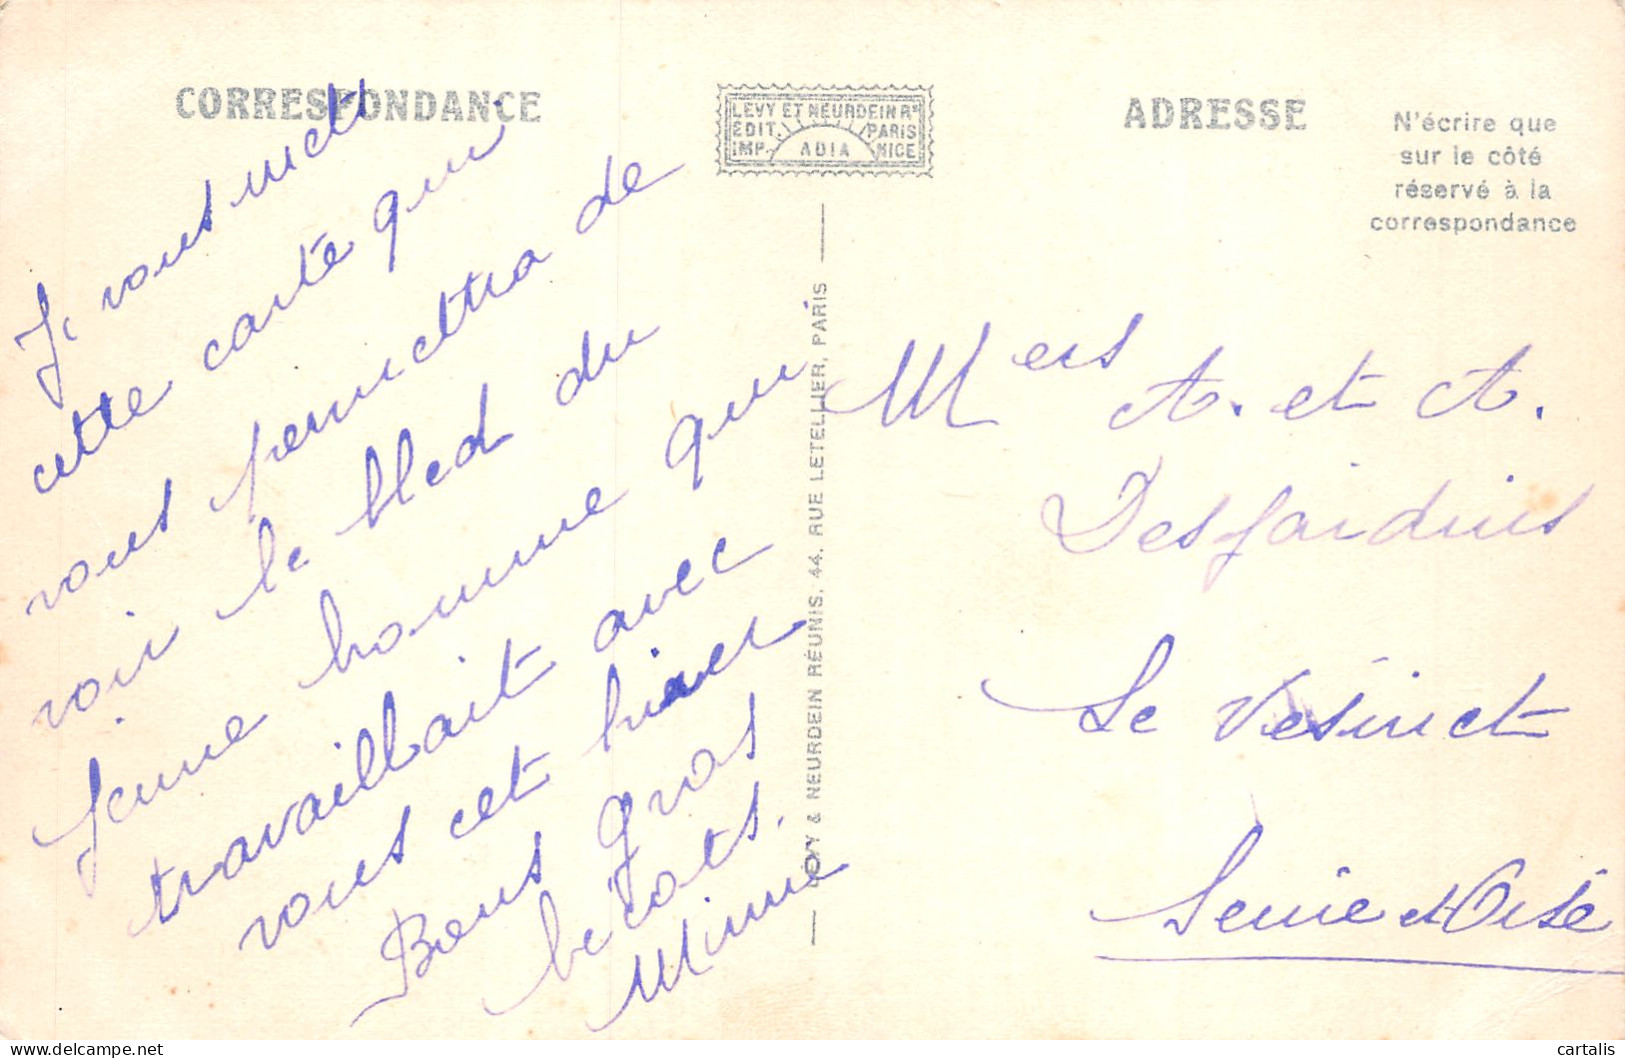 CORRESPONDANCE
Je vous mets
cette carte qui
vous permettra de
voir le bled du
jeune homme qui
travaillait avec
vous cet hiver
Bons gros
bécots.
Mimie
LEVY ET NEURDEIN Rs
EDIT. PARIS
IMP. ADIA NICE
LEVY & NEURDEIN RÉUNIS, 44, RUE LETELLIER, PARIS
ADRESSE
N'écrire que
sur le côté
réservé à la
correspondance
Mers A. et A.
Desjardins
Le Vésinet
Seine et Oise
cartalis
delcampe.net